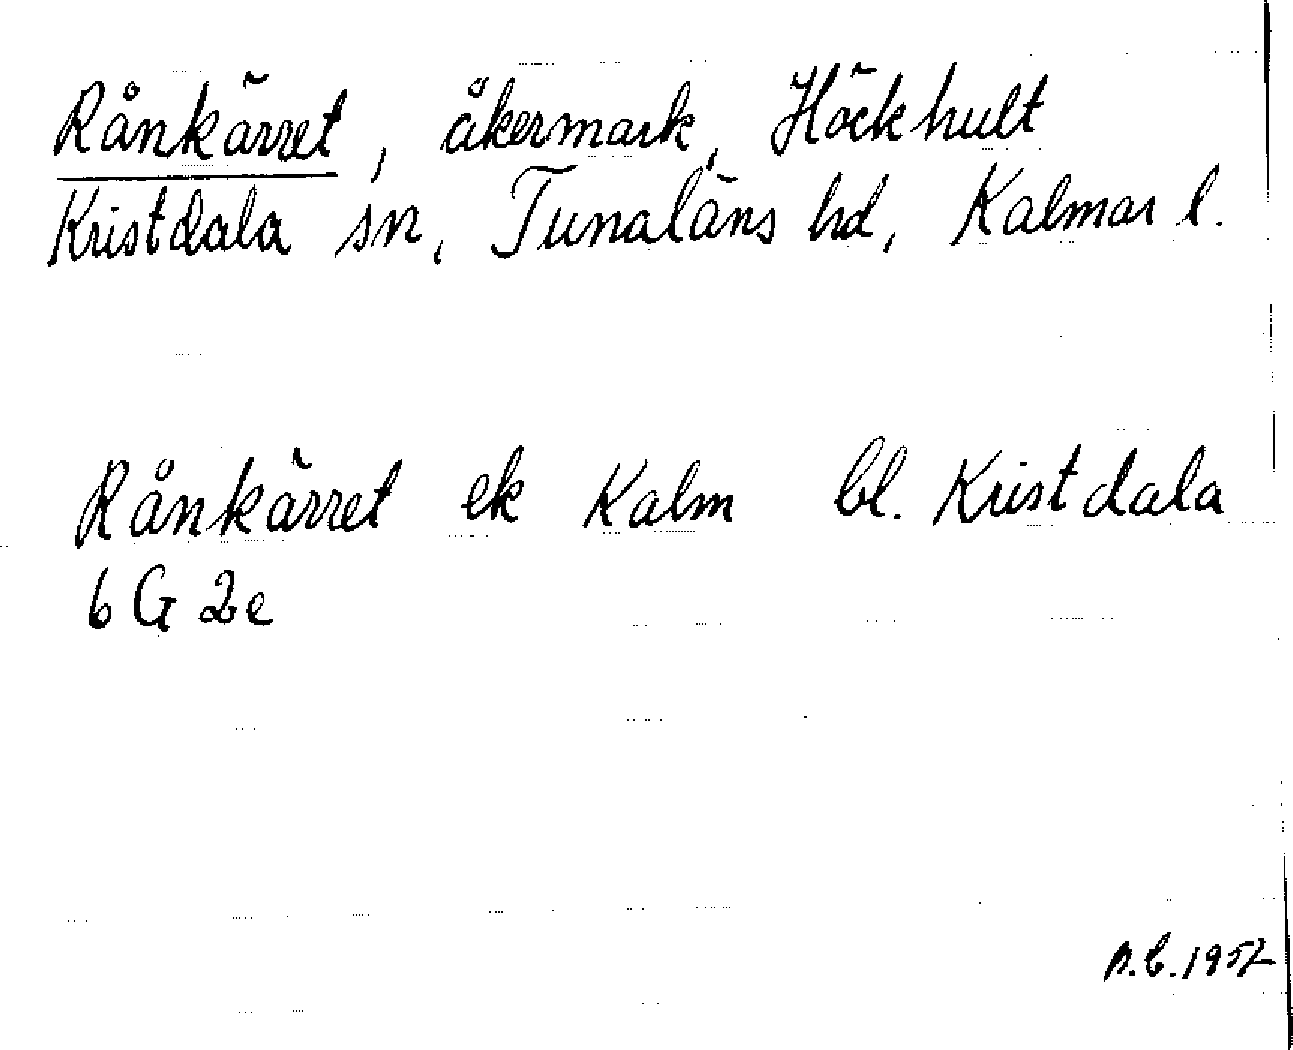 Rånkärret, åkermark, Höckhult
Kristdala sn, Tunaläns hd, Kalmar l.
Rånkärret ek Kalm bl. Kristdala
6 G 2e
n.b. 1957